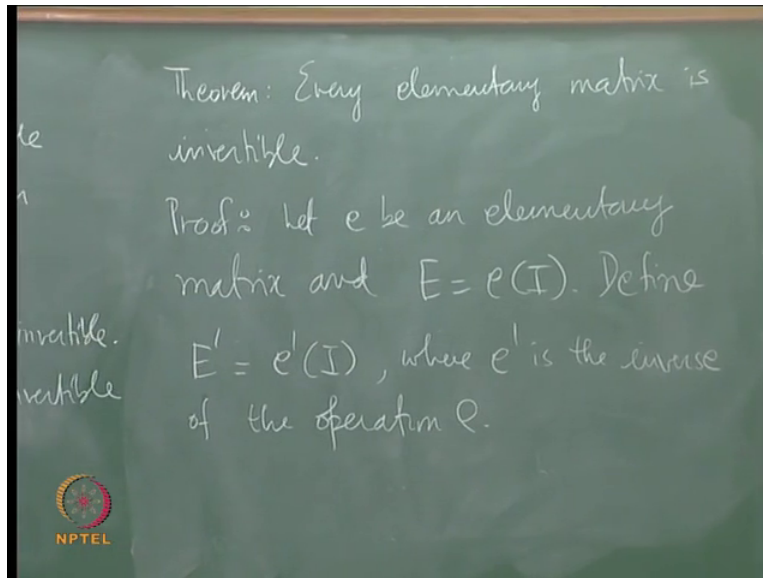 Theorem: Every elementary matrix is
invertible.
Proof: Let e be an elementary
matrix and E = e(I). Define
E' = e'(I), where e' is the inverse
of the operation e.
invertible.
NPTEL